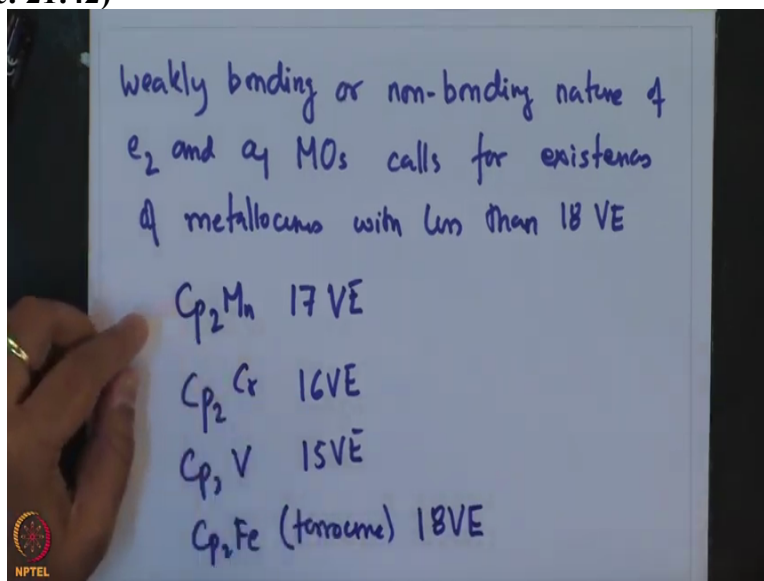 21:42)
Weakly bonding or non-bonding nature of
e₂ and a₁ MOs calls for existence
of metallocenes with less than 18 VE
Cp₂Mn 17 VE
Cp₂Cr 16VE
Cp₂V 15VE
Cp₂Fe (ferrocene) 18VE
NPTEL